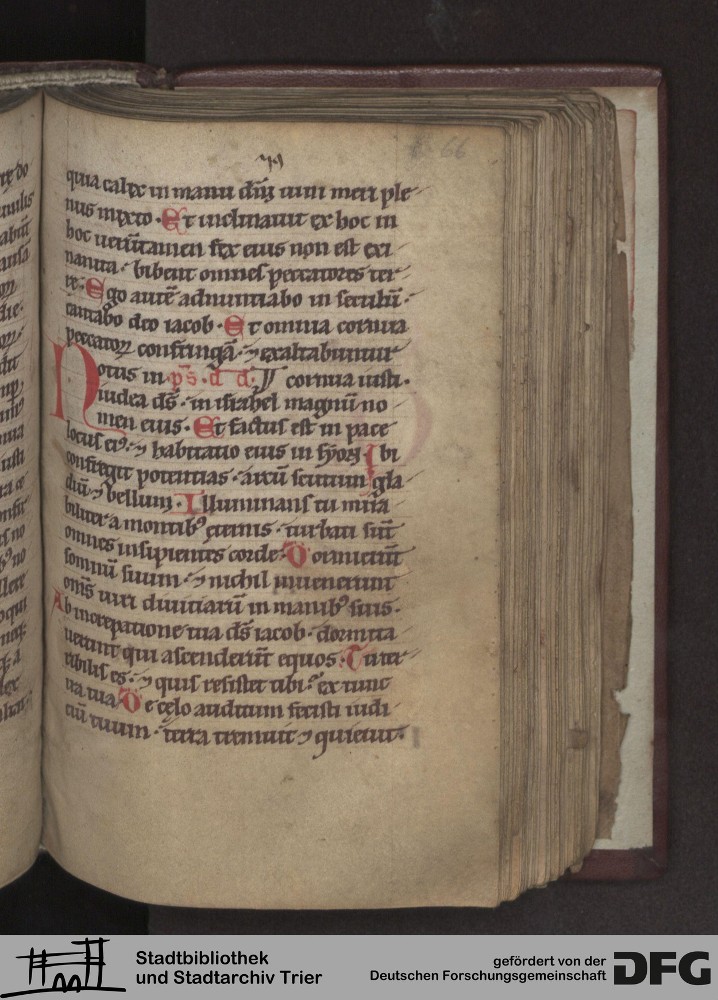 66
quia calix in manu dñi uini meri ple
nus mixto. Et inclinauit ex hoc in
hoc uerũtamen fex eius non est exi
nanita. bibent omnes peccatores ter
re. Ego autẽ adnuntiabo in seculũ.
cantabo deo iacob. Et omnia cornua
peccatoꝝ confringã. ⁊ exaltabuntur
Notus in ps. d d. cornua iusti.
iudea ds̃. in israhel magnũ no
men eius. Et factus est in pace
locus eiꝰ. ⁊ habitatio eius in syon. Ibi
confregit potentias. arcũ scutum gla
diũ ⁊ bellum. Illuminans tu mira
biliter a montibꝰ eternis. turbati sũt
omnes insipientes corde. Dormierũt
somnũ suum. ⁊ nichil inuenerunt
om̃s uiri diuitiarũ in manibꝰ suis.
Ab increpatione tua ds̃ iacob. dormita
uerunt qui ascenderũt equos. Tu ter
ribilis es. ⁊ quis resistet tibi. ex tunc
ira tua. De celo auditum fecisti iudi
ciũ tuum. terra tremuit ⁊ quieuit.
Stadtbibliothek
und Stadtarchiv Trier
gefördert von der
Deutschen Forschungsgemeinschaft
DFG